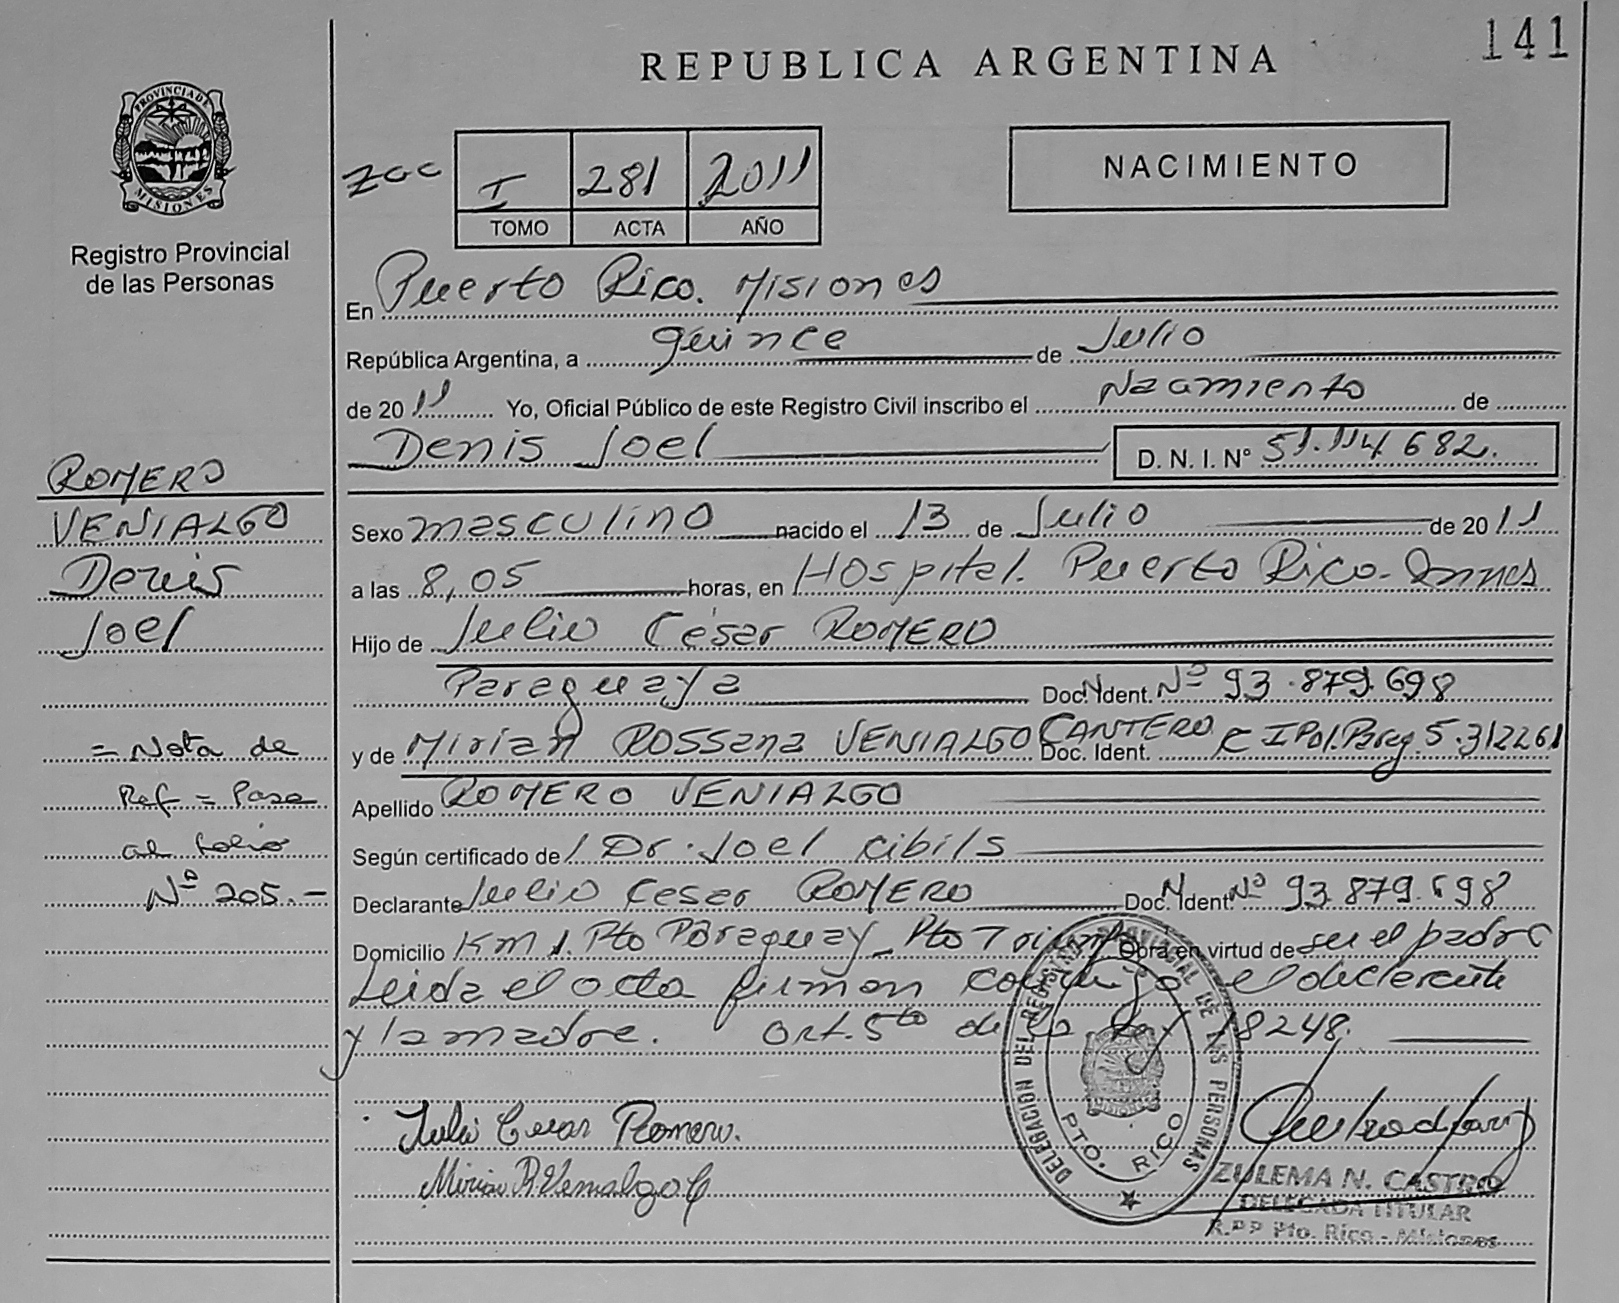 141
REPUBLICA ARGENTINA
PROVINCIA DE
MISIONES
Registro Provincial
de las Personas
I 281 2011
TOMO ACTA AÑO
NACIMIENTO
En Puerto Rico. Misiones
República Argentina, a quince de Julio
de 2011 Yo, Oficial Público de este Registro Civil inscribo el Nacimiento de
Denis Joel D. N. I. Nº 51.114.682.
ROMERO
VENIALGO
Denis
Joel
Sexo masculino nacido el 13 de Julio de 2011
a las 8,05 horas, en Hospital. Puerto Rico-
Hijo de Julio César ROMERO
Paraguaya Doc. Ident. Nº 93.879.698
y de Mirian ROSSana VENIALGO CANTERO Doc. Ident. C I Pol. Parag. 5.312261
Apellido ROMERO VENIALGO
Según certificado de Dr. Joel Cibils
Declarante Julio Cesar ROMERO Doc. Ident Nº 93.879.698
Domicilio Km 1. Pto Paraguay - Pto Triunfo Obra en virtud de ser el padre
Leida el acta firman conmigo el declarante
y la madre. Art. 5to de la Ley 18248.
= Nota de
Ref = Pasa
al folio
Nº 205.-
Julio Cesar Romero.
Mirian R. Venialgo C
DELEGACION DEL REGISTRO PROVINCIAL DE LAS PERSONAS
PTO. RICO
ZULEMA N. CASTRO
DELEGADA TITULAR
R.P.P Pto. Rico - Misiones